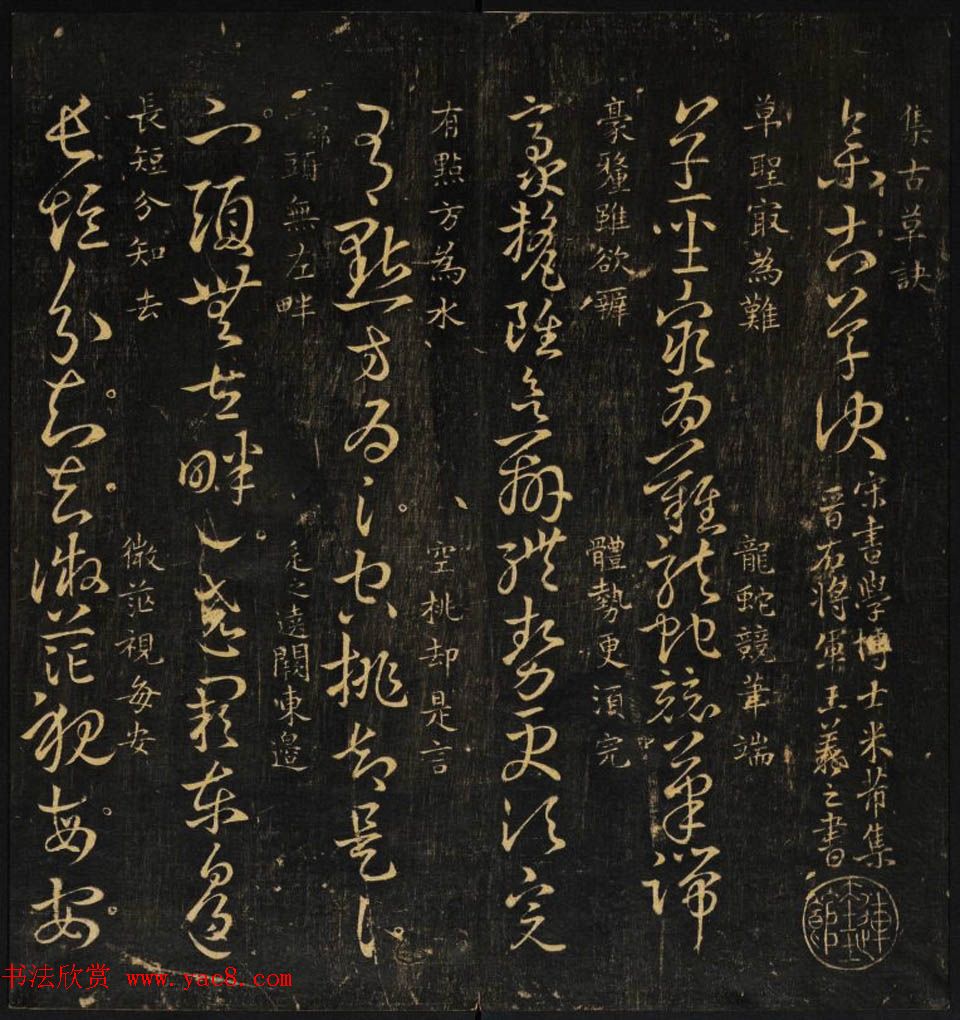 集古草訣
集古草訣
宋書學博士米芾集
晉右將軍王羲之書
草聖㝡為難
龍蛇競筆端
草聖㝡為難龍蛇競筆端
豪釐雖欲辨
體勢更須完
豪釐雖欲辨體勢更須完
有點方為水
空挑却是言
有點方為水空挑却是言
頭無左畔
之遠闕東邉
宀頭無左畔辶遶闕東邉
長短分知去
微茫視每安
長短分知去微茫視每安
书法欣赏 www.yac8.com